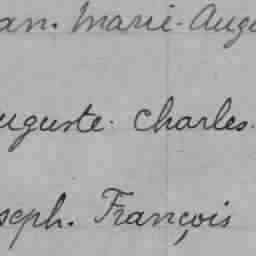 an. Marie-Augu
uguste. Charles.
seph. François